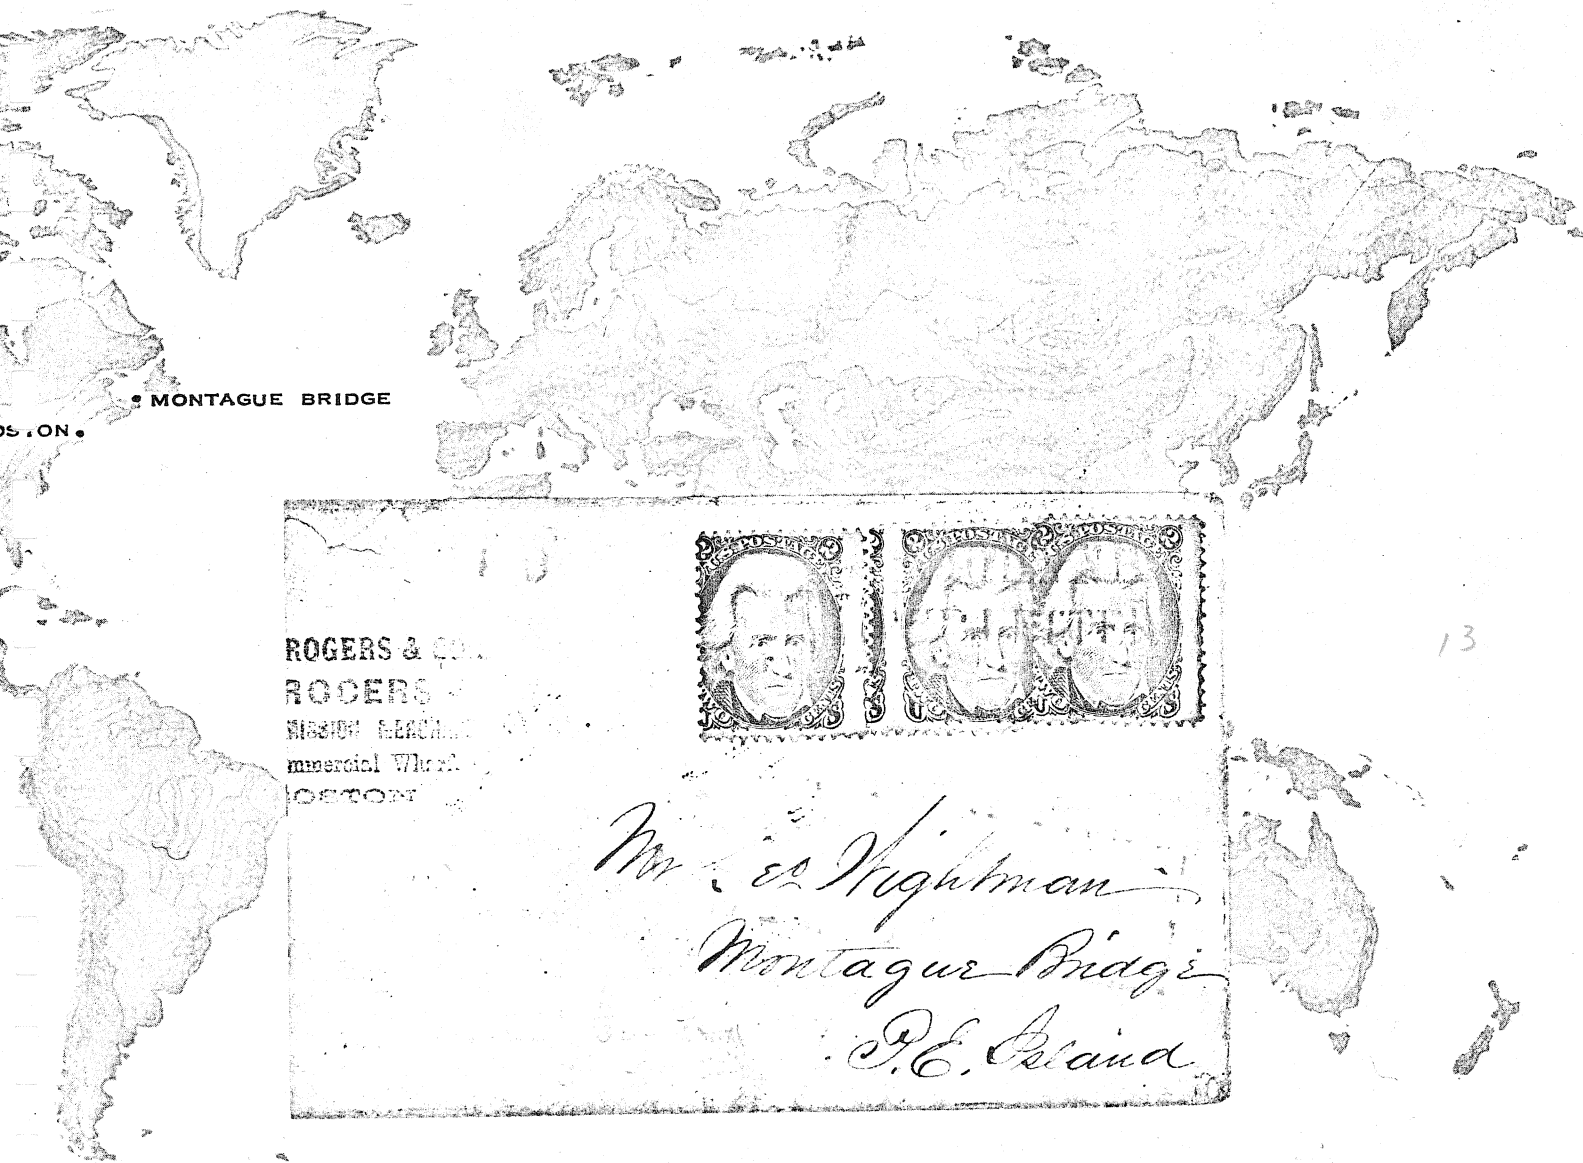 MONTAGUE BRIDGE
OSTON
ROGERS & CO.
ROGERS
MISSION MERCHA
mmercial Wharf.
OSTON
U.S. POSTAGE
U.S. POSTAGE
U.S. POSTAGE
Mr eo Wightman
Montague Bridge
P.E. Island
13